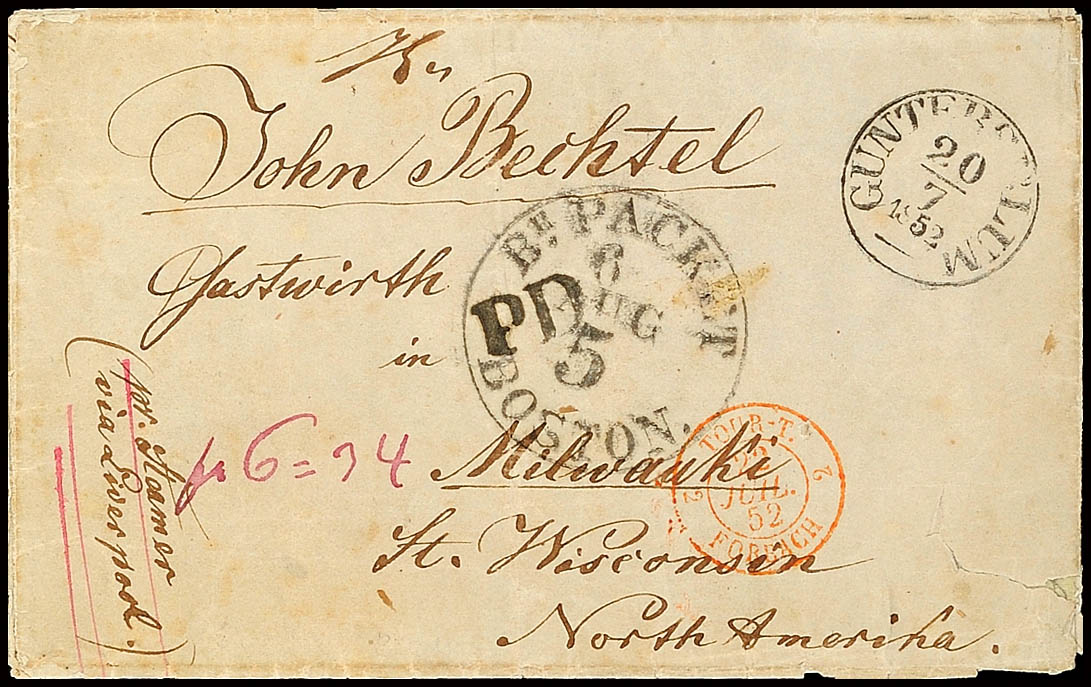 Hr
John Bechtel
Gastwirth
in
Milwauki
St. Wisconsin
North Amerika.
(pr. Steamer
via Liverpool.)
6 = 34
GUNTERSBLUM
20
7
1852
BR. PACKET
6
AUG
5
BOSTON.
PD
TOUR-T.
22
JUIL.
52
FORBACH
2
2